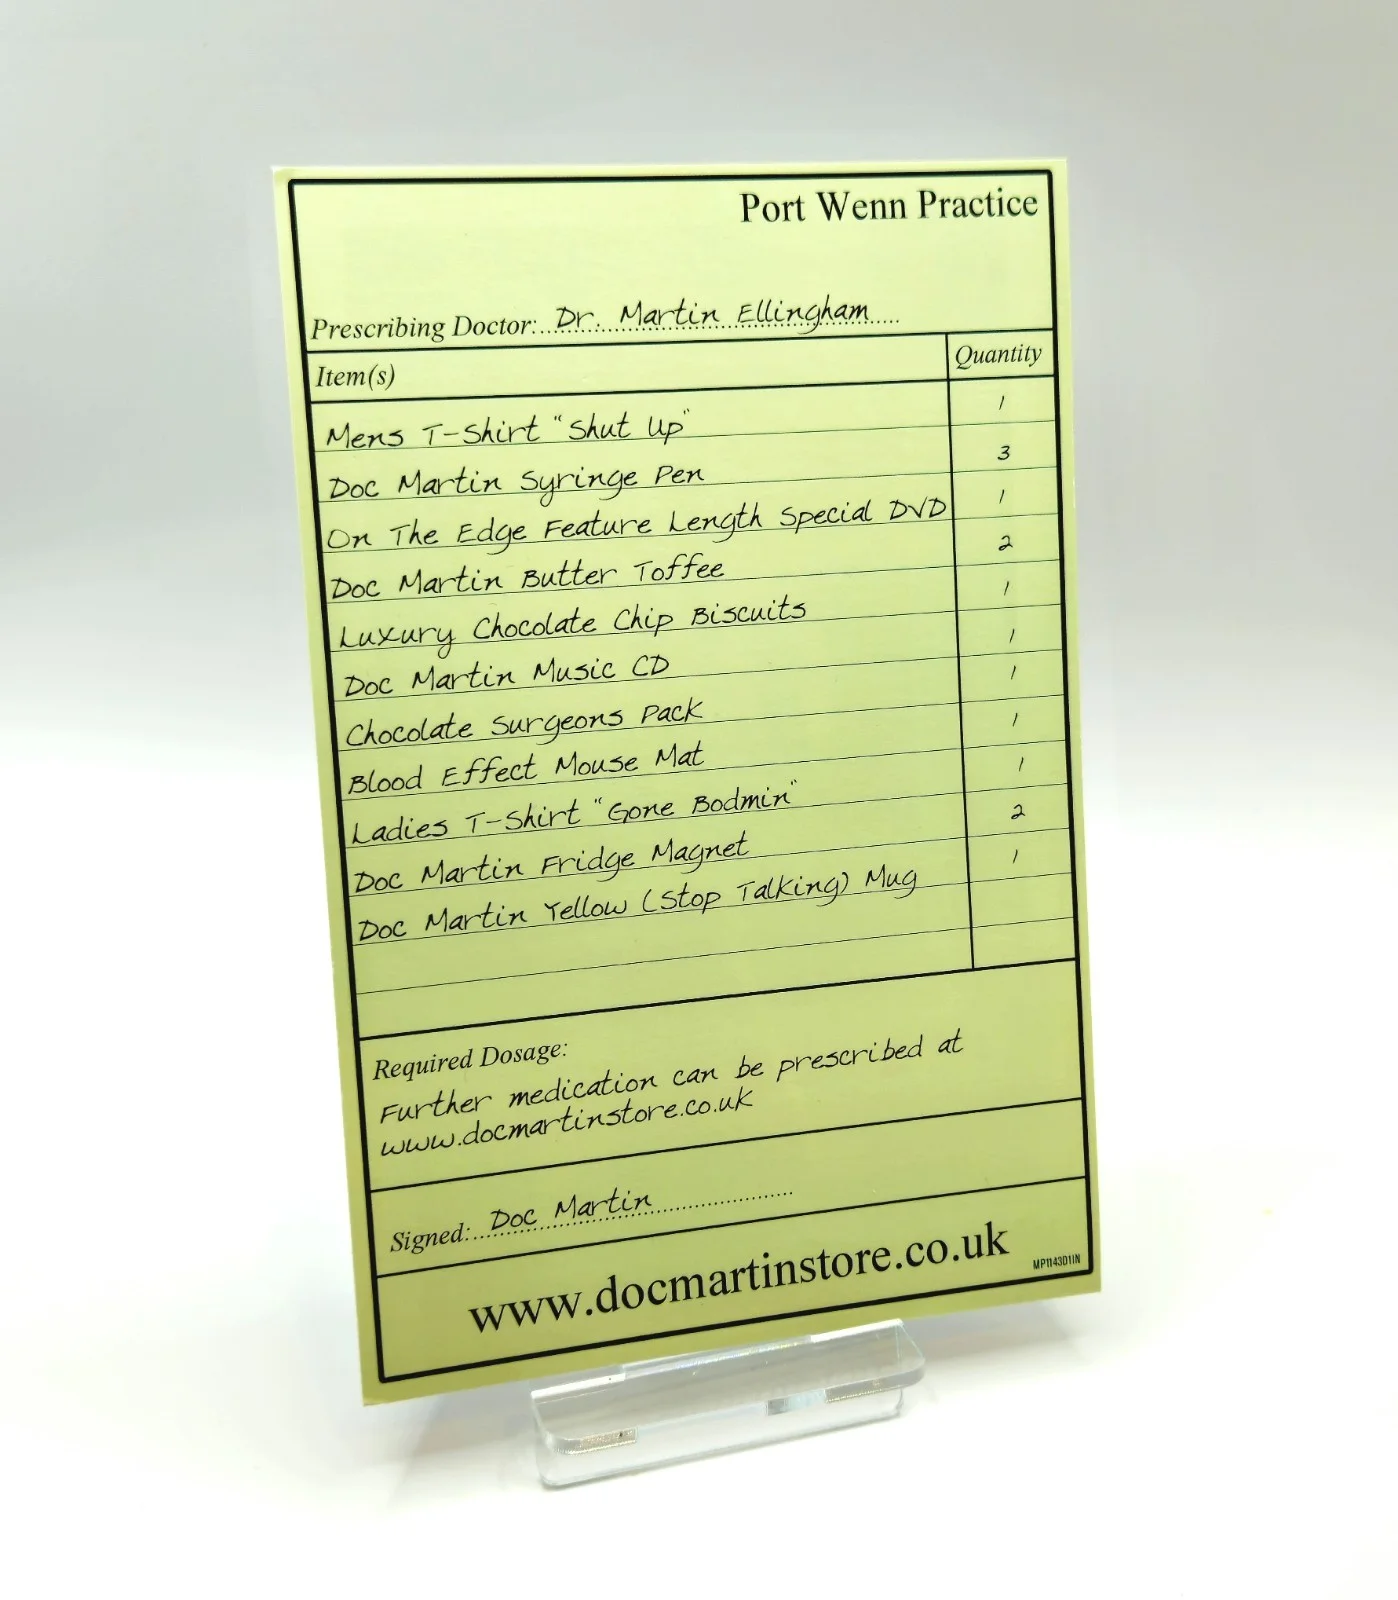 Port Wenn Practice
Prescribing Doctor: Dr. Martin Ellingham
Item(s) Quantity
Mens T-Shirt "Shut Up" 1
Doc Martin Syringe Pen 3
On The Edge Feature Length Special DVD 1
Doc Martin Butter Toffee 2
Luxury Chocolate Chip Biscuits 1
Doc Martin Music CD 1
Chocolate Surgeons Pack 1
Blood Effect Mouse Mat 1
Ladies T-Shirt "Gone Bodmin" 1
Doc Martin Fridge Magnet 2
Doc Martin Yellow (Stop Talking) Mug 1
Required Dosage:
Further medication can be prescribed at
www.docmartinstore.co.uk
Signed: Doc Martin
www.docmartinstore.co.uk
MP1143D1IN